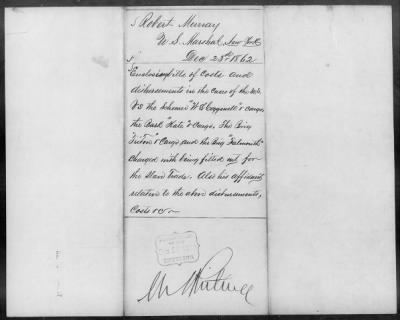 Robert Murray
U. S. Marshal, New York
Dec 23rd 1862
Enclosing bills of Costs and
disbursements in the case of the U.S.
vs the Schooner "W. E. Cogswell" & cargo,
the Bark "Kate" & Cargo, The Brig
"Triton" & Cargo and the Brig "Falmouth"
charged with being fitted out for
the Slave Trade. Also his affidavit
relative to the above disbursements,
Costs &c